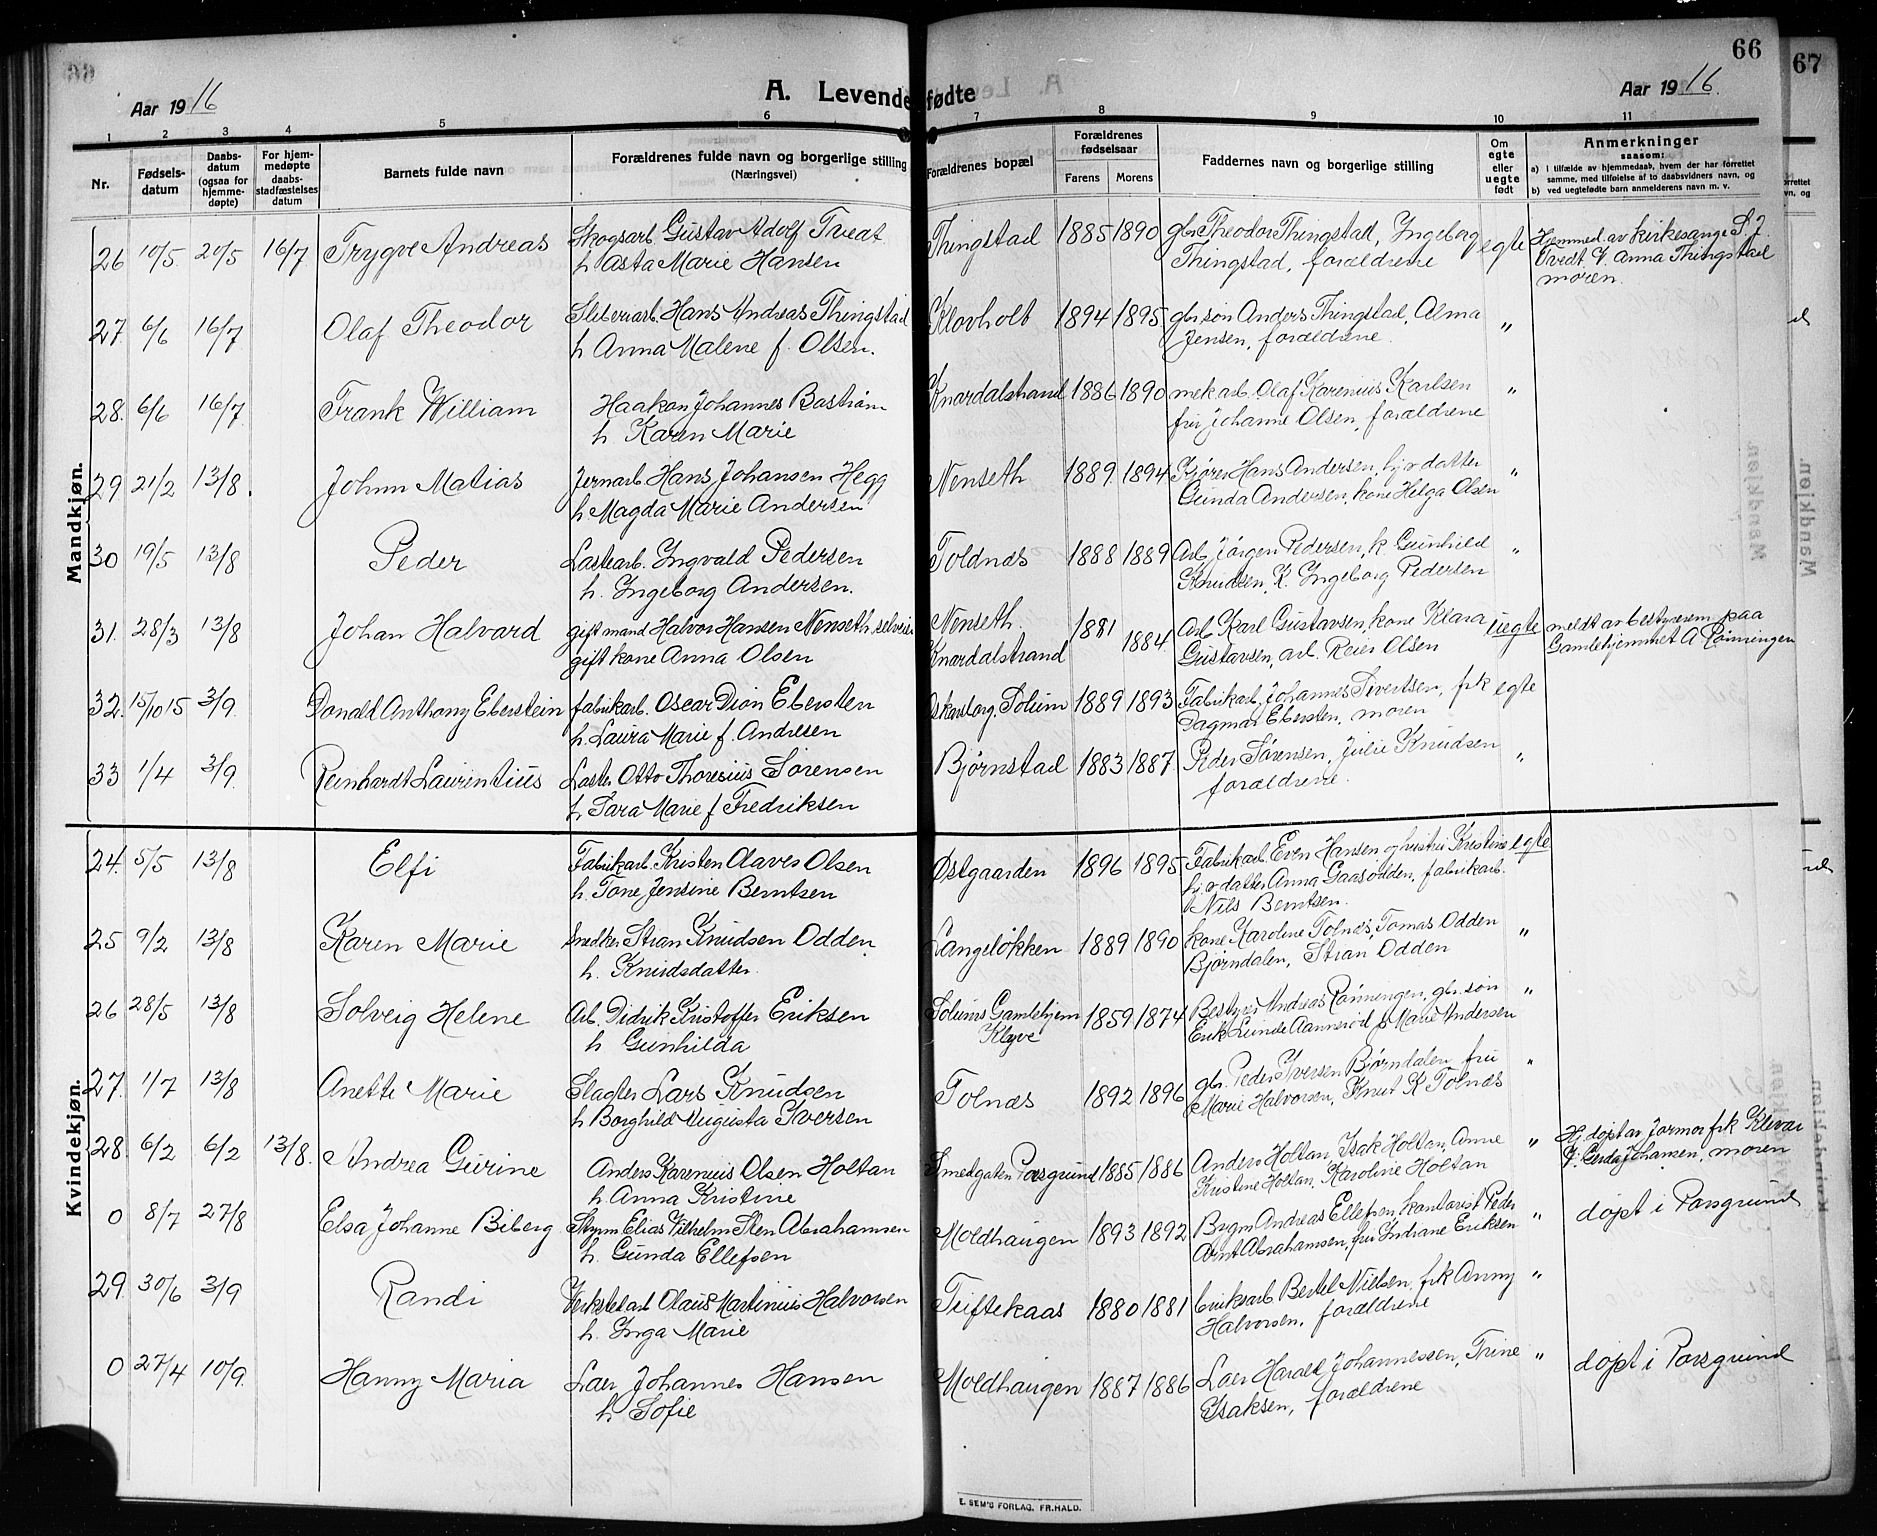 66
67
Aar 1916
A. Levendefødte
Aar 1916.
1 2 3 4 5 6 7 8 9 10 11
Nr.
Fødselsdatum
Daabsdatum (ogsaa for hjemmedøpte)
For hjemmedøpte daabsstadfæstelses datum
Barnets fulde navn
Forældrenes fulde navn og borgerlige stilling
(Næringsvei)
Forældrenes bopæl
Forældrenes fødselsaar
Farens Morens
Faddernes navn og borgerlige stilling
Om egte eller uegte født
Anmerkninger
saasom:
a) i tilfælde av hjemmedaab, hvem der har forrettet
samme, med tilføielse af to daabsvidners navn, og
b) ved uegtefødte barn anmelderens navn m. v.
Mandkjøn.
26 10/5. 20/5 16/7 Trygve Andreas Skogsarb. Gustav Adolf Tveat Thingstad 1885 1890 gbr Theodor Thingstad, Ingeborg egte Hjemmed. av kirkesanger S. J.
h. Asta Marie Hansen Thingstad, forældrene Tvedt V. Anna Thingstad
moren.
27. 6/6 16/7 Olaf Theodor Sliberiarb. Hans Andreas Thingstad Klovholt 1894 1895 gbr.søn Anders Thingstad, Alma "
h Anna Malene f. Olsen. Jensen, forældrene.
28. 6/6 16/7. Frank William Haakon Johannes Bostrøm Knardalstrand 1886 1890 mek.arb. Olaf Karenius Karlsen "
h. Karen Marie fru Johanne Olsen, forældrene
29 21/2 13/8. Johnn Matias Jernarb Hans Johansen Hegg Nenseth 1889 1894 Kjører Hans Andersen, hj.v. datter "
h. Magda Marie Andersen Gunda Andersen, kone Helga Olsen
30 19/5 13/8 Peder Lastearb. Ingvald Pedersen Toldnæs 1888 1889 Arb. Jørgen Pedersen, k Gunhild "
h. Ingeborg Andersen. Knudsen, K. Ingeborg Pedersen
31. 28/3 13/8 Johan Halvard gift mand Halvor Hansen Nenseth, selveier Nenseth. 1881 Arb. Karl Gustavsen, kone Klara uegte meldt av bestyreren paa
gift kone Anna Olsen Knardalstrand 1884. Gustavsen, arb. Reier Olsen Gamlehjemmet A Rønningen
32. 15/10 15 3/9. Donald Anthony Eberstein fabrikarb. Oscar Dion Ebersten Oskarsborg, Solum 1889 1893 Fabrikarb. Johannes Sivertsen, frk egte
h. Laura Marie f. Andresen Dagmar Ebersten, moren
33 1/4 3/9. Reinhardt Laurentius Laster Otto Thoresius Sørensen Bjørnstad 1883 1887. Peder Sørensen, Julie Knudsen "
h Sara Marie f Fredriksen forældrene.
Kvindekjøn.
24. 5/5 13/8 Elfi Fabrikarb. Kristen Aaves Olsen Østgaarden 1896 1895 Fabrikarb. Even Hansen og hustru Kristine egte
h. Tone Jensine Berntsen hj. v datter Anna Gaasodden, fabrikarb.
Nils Berntsen.
25 9/2 13/8 Karen Marie Snedker Stran Knudsen Odden, Langeløkken 1889 1890 kone Karoline Tolnæs, Tomas Odden "
h. Knudsdatter. Bjørndalen, Stran Odden
26 28/5 13/8 Solveig Helene Arb. Didrik Kristoffer Eriksen Solums Gamlehjem 1859 1874 Bestyrer Andreas Rønningen, gbr.søn "
h Gunhilda Klyve Erik Lunde Aannerød fr Marie Andersen
27. 1/7 13/8 Anette Marie Slagter Lars Knudsen Tolnæs 1892 1896 gbr. Peder Iversen Bjørndalen, fru "
h Borghild Augusta Iversen Marie Halvorsen, Knut K Tolnæs
28. 6/2 6/2 13/8. Andrea Gurine Anders Karenius Olsen Holtan Smedgaten Porsgrund 1885 1886 Anders Holtan, Isak Holtan, Anne " Hj. døpt av Jormor frk Klevar
h. Anna Kristine Kristine Holtan, Karoline Holtan V. Gerda Johansen, moren
0 8/7 27/8 Elsa Johanne Biberg Styrm Elias Vilhelm Sten Abrahamsen Moldhaugen 1893 1892 Bygm Andreas Ellefsen, kontorist Peder " døpt i Porsgrund
h. Gunda Ellefsen Arnt Abrahamsen, fru Indiane Eriksen
29. 30/6 3/9 Randi Verkstedarb Olaus Martinius Halvorsen Tuftekaas 1880 1881 bruksarb Bertel Nielsen, frk Anny "
h. Inga Marie Halvorsen, forældrene
0 27/4 10/9. Hanny Maria Laer Johannes Hansen Moldhaugen 1887 1886 Laer Harald Johannessen, Trine " døpt i Porsgrund
h Sofie Isaksen, forældrene
E. SEM'S FORLAG, FR.HALD.